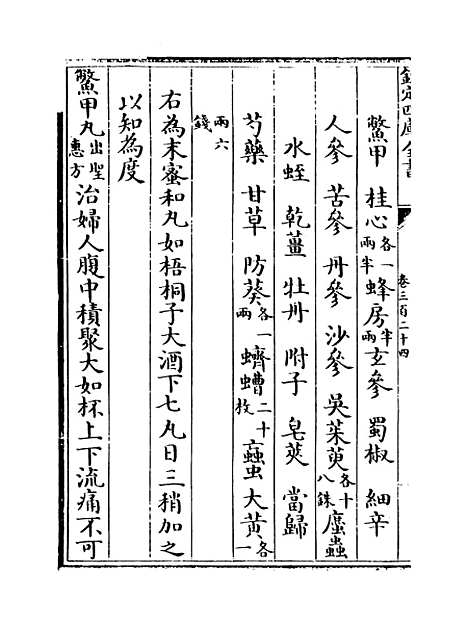 欽定四庫全書
卷三百二十四
鱉甲 桂心各一兩半 蜂房半兩 玄參 蜀椒 細辛
人參 苦參 丹參 沙參 吳茱萸各十八銖 䗪蟲
水蛭 乾薑 牡丹 附子 皂莢 當歸
芍藥 甘草 防葵各一兩 蠐螬二十枚 蝱虫 大黃各一
兩六錢
右為末蜜和丸如梧桐子大酒下七丸日三稍加之
以知為度
鱉甲丸出聖惠方 治婦人腹中積聚大如杯上下流痛不可